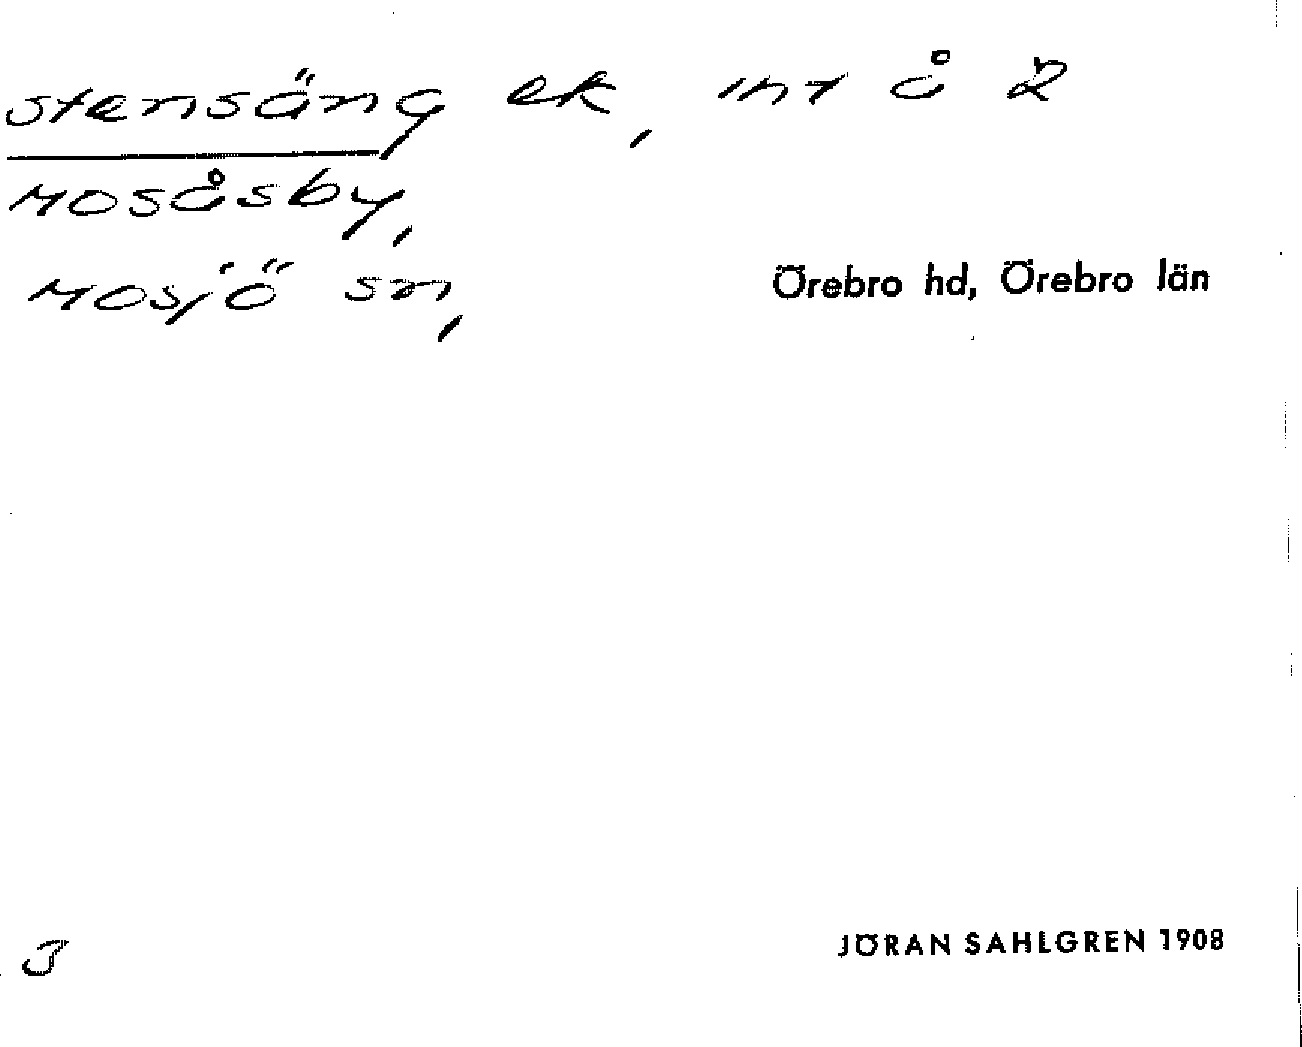 Stensäng ek, int å 2
Mosåsby,
Mosjö sn,
Örebro hd, Örebro län
3
JÖRAN SAHLGREN 1908